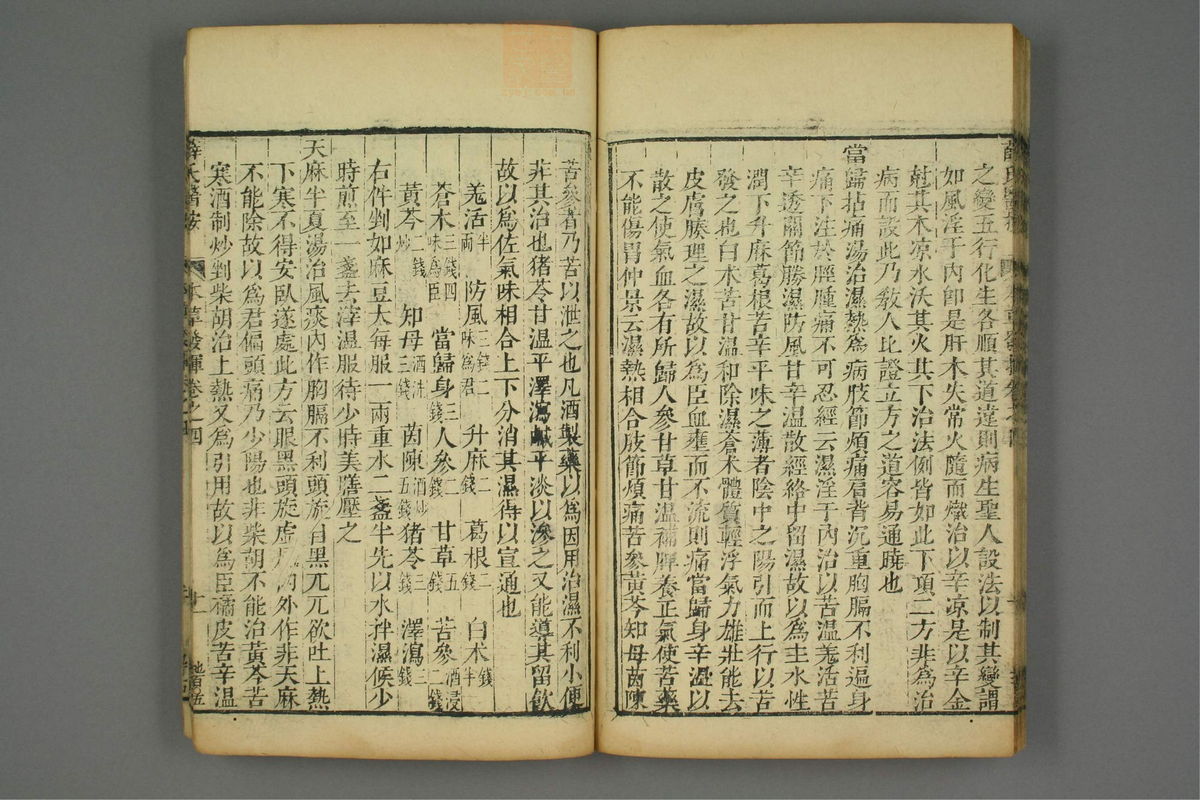 之變五行化生各順其道違則病生聖人設法以制其變謂
如風淫于內卽是肝木失常火隨而熾治以辛凉是以辛金
尅其木凉水沃其火其下治法例皆如此下項二方非爲治
病而設此乃教人比證立方之道容易通曉也
當歸拈痛湯治濕熱爲病肢節煩痛肩背沉重胸膈不利遍身
痛下注於脛腫痛不可忍經云濕淫于內治以苦温羗活苦
辛透關節勝濕防風甘辛温散經絡中留濕故以爲主水性
潤下升麻葛根苦辛平味之薄者陰中之陽引而上行以苦
發之也白术苦甘温和除濕蒼术體質輕浮氣力雄壯能去
皮膚腠理之濕故以爲臣血壅而不流則痛當歸身辛温以
散之使氣血各有所歸人參甘草甘温補脾養正氣使苦藥
不能傷胃仲景云濕熱相合肢節煩痛苦參黃芩知母茵陳
苦參者乃苦以泄之也凡酒製藥以爲因用治濕不利小便
非其治也猪苓甘温平澤瀉鹹平淡以滲之又能導其留飲
故以爲佐氣味相合上下分消其濕得以宣通也
羗活半兩 防風三錢二味爲君 升麻二錢 葛根二錢 白术錢半
蒼木三錢四味爲臣 當歸身三錢 人參二錢 甘草五錢 苦參酒浸二錢
黃芩炒二錢 知母酒洗三錢 茵陳酒炒五錢 猪苓三錢 澤瀉三錢
右件剉如麻豆大每服一兩重水二盞半先以水拌濕候少
時煎至一盞去滓温服待少時美膳壓之
天麻半夏湯治風痰內作胸膈不利頭旋目黑兀兀欲吐上熱
下寒不得安臥遂處此方云眼黑頭旋虛風內外作非天麻
不能除故以爲君偏頭痛乃少陽也非柴胡不能治黃芩苦
寒酒制炒剉柴胡治上熱又爲引用故以爲臣橘皮苦辛温
薛氏醫按 本草發揮卷之四